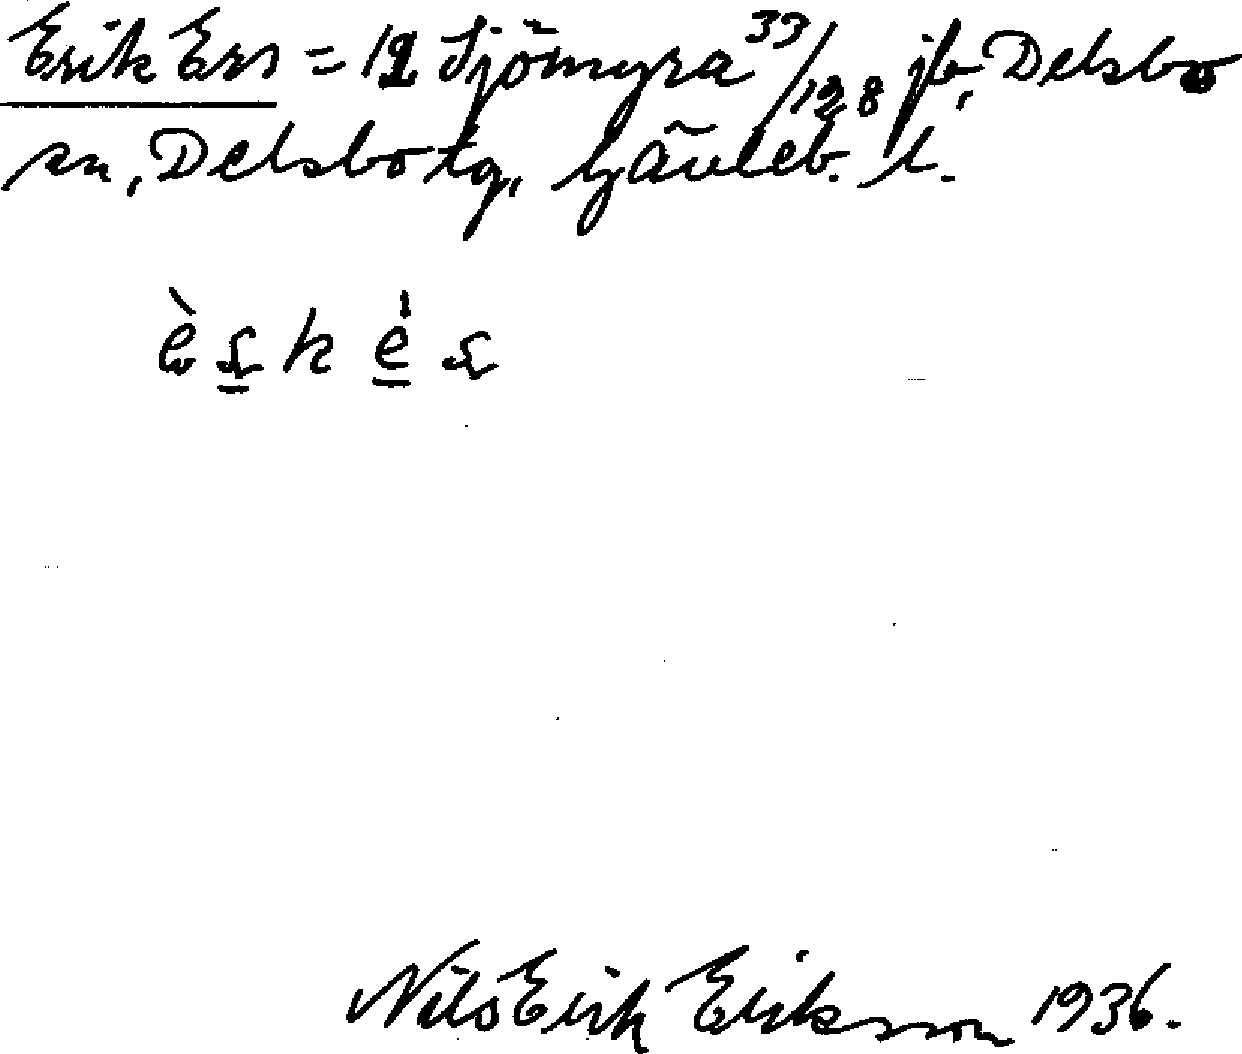 Erik Ers = 12 Sjömyra 33/128 jb, Delsbo
sn, Delsbo tg, Gävleb. l.
Nils Erik Eriksson 1936.